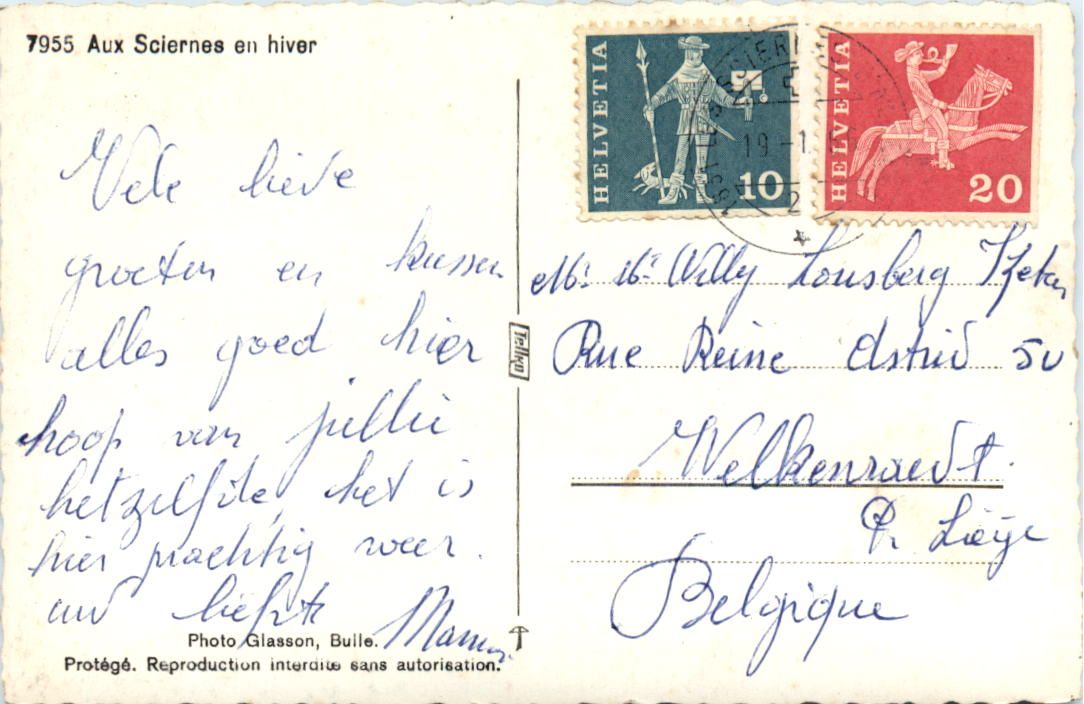 7955 Aux Sciernes en hiver
Vele lieve
groeten en kussen
alles goed hier
hoop van jullie
hetzelfde, het is
hier prachtig weer.
uw liefste
Photo Glasson, Bulle.
Protégé. Reproduction interdite sans autorisation.
Tellko
HELVETIA
10
HELVETIA
20
19 -1
2
Mr Mr Willy Lousberg
Rue Reine Astrid 50
Welkenraedt.
Pr Liège
Belgique